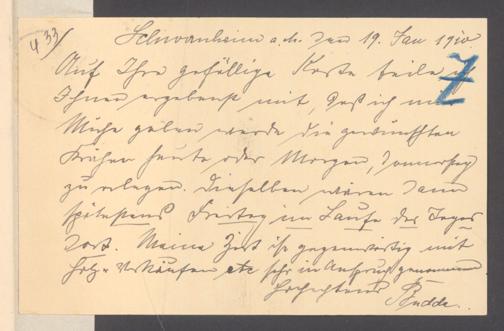 433
Schwanheim a. M. den 19. Jan 1910.
Auf Ihre gefällige Karte teile ich
Ihnen ergebenst mit, daß ich mir
Mühe geben werde die gewünschten
Krähen heute oder Morgen, Donnerstag
zu erlegen. Dieselben wären dann
spätestens Freitag im Laufe des Tages
dort. Meine Zeit ist gegenwärtig mit
Holz-Verkäufen etc sehr in Anspruch genommen
Hochachtend
Budde.